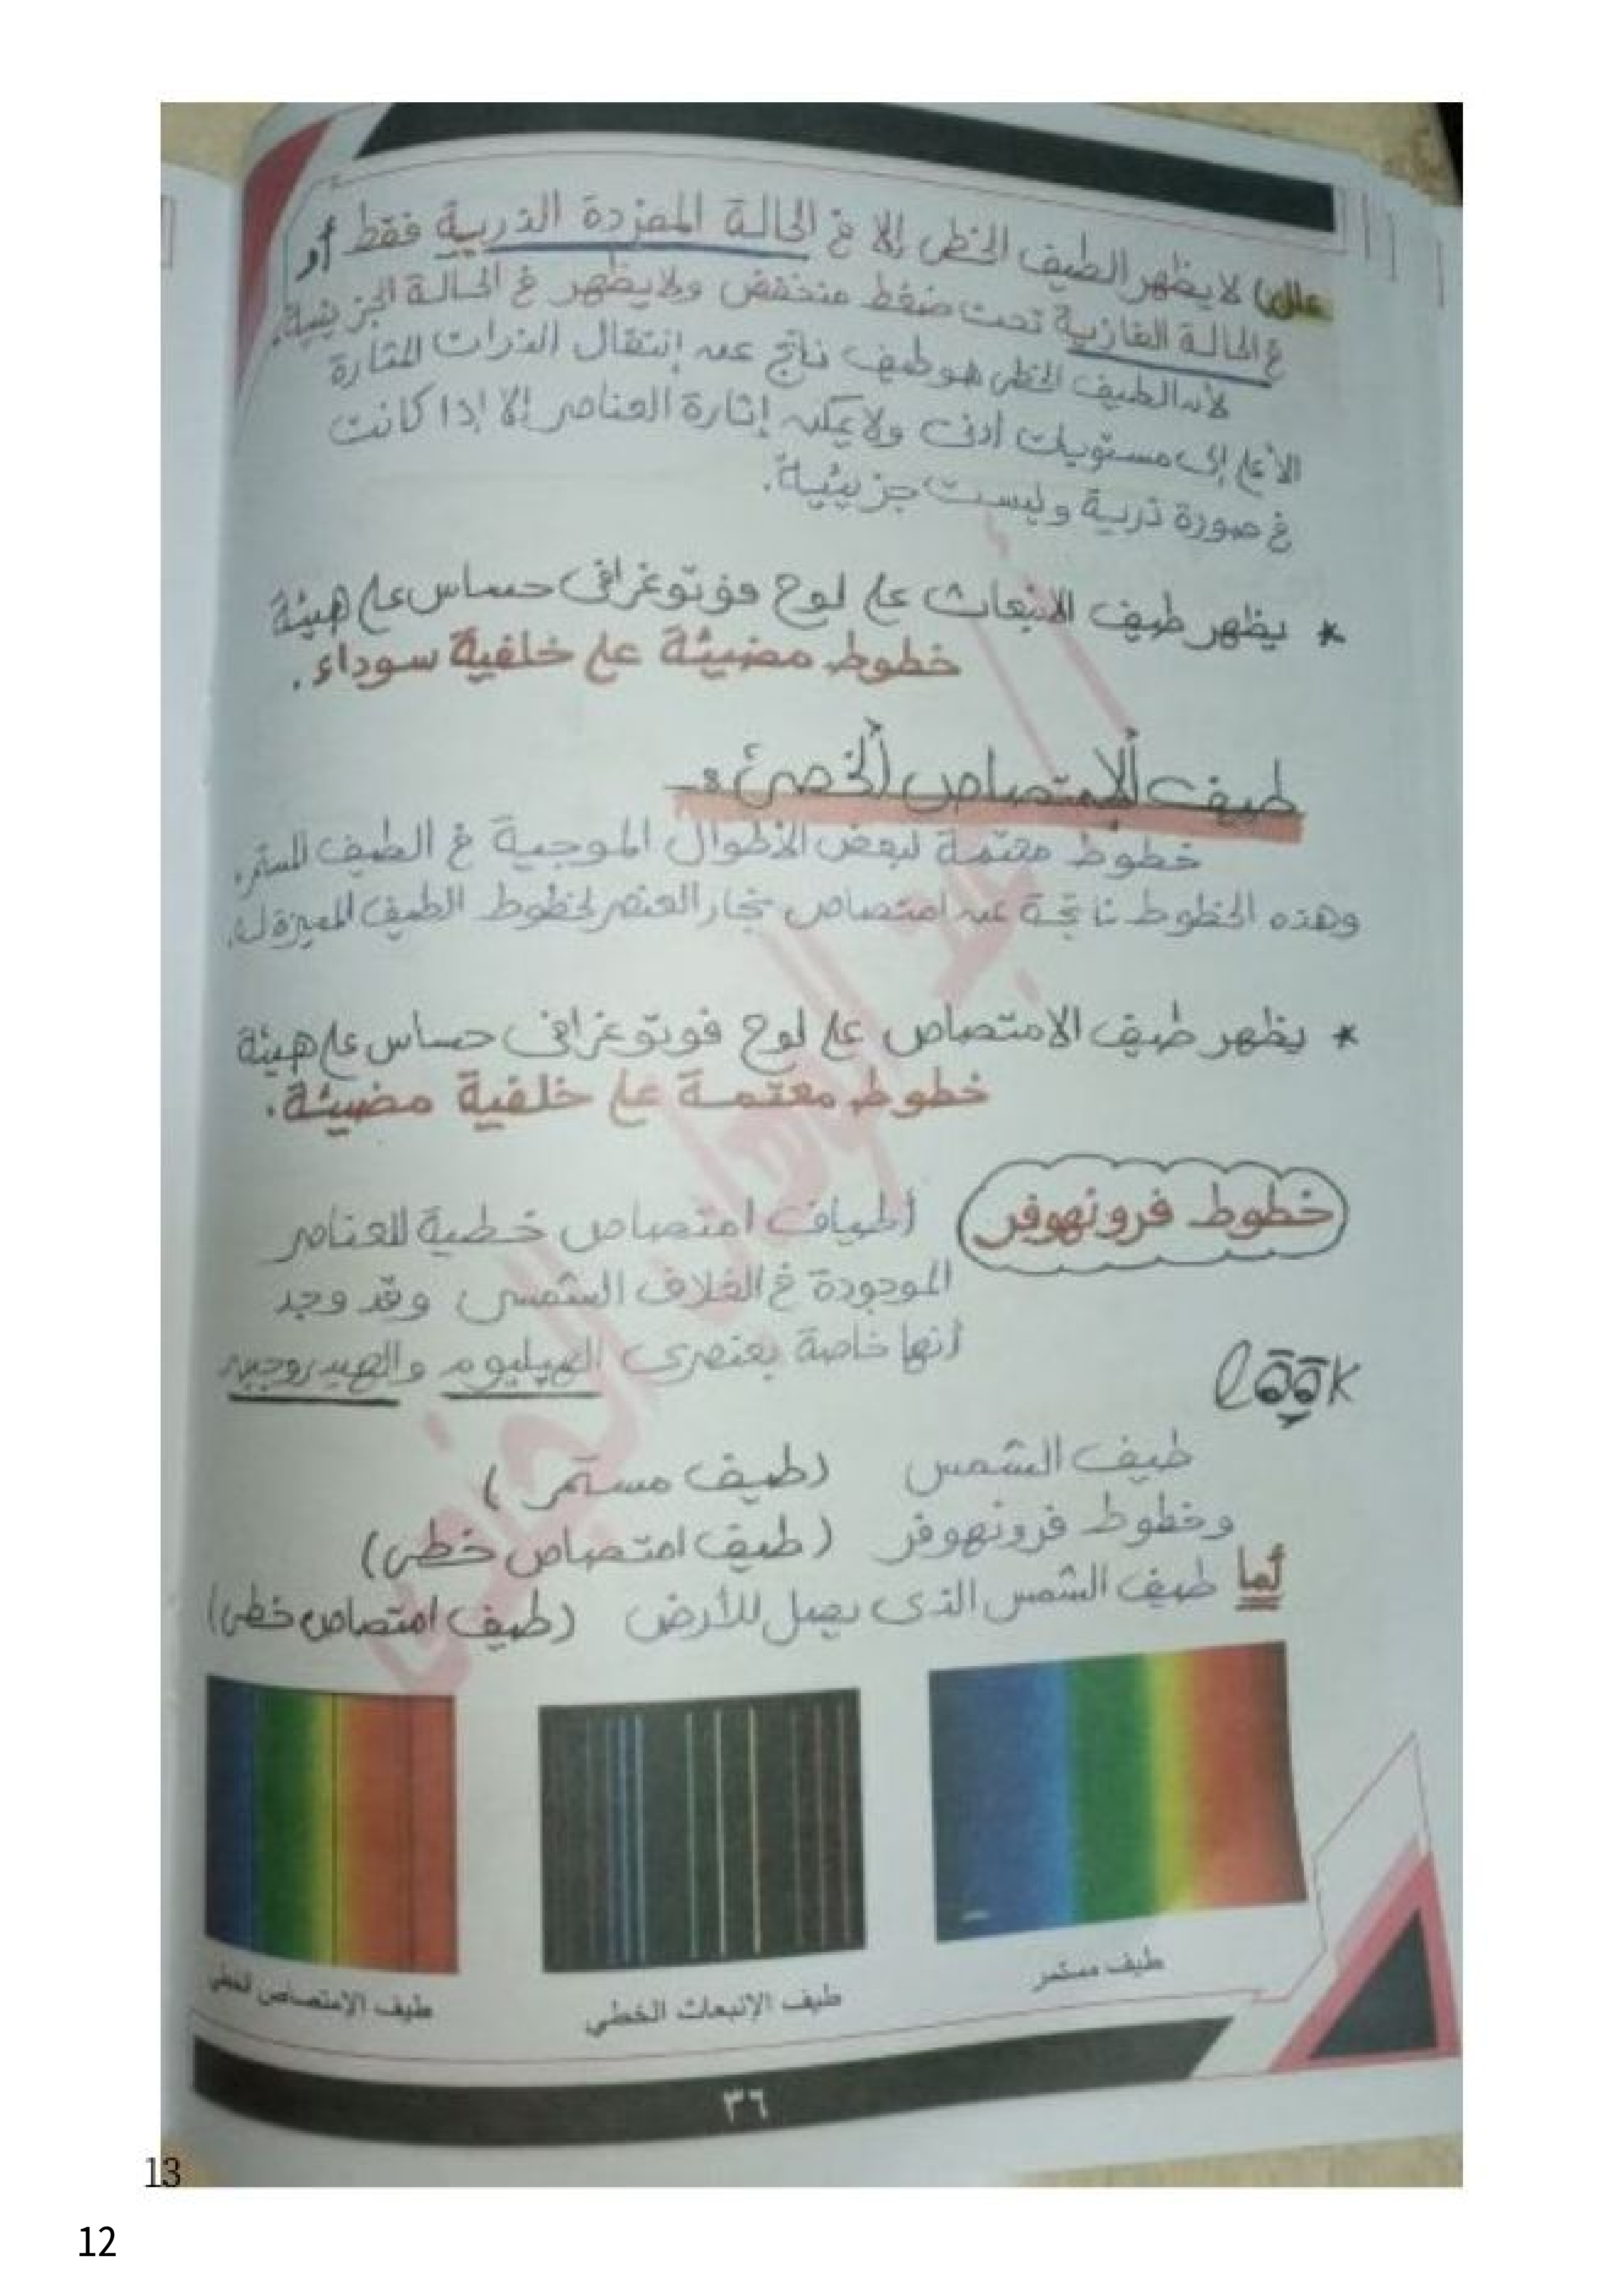 علل) لا يظهر الطيف الخطى إلا فى الحالة المفردة الذرية فقط أو
فى الحالة الغازية تحت ضغط منخفض ولا يظهر فى الحالة الجزيئية.
لأن الطيف الخطى هو طيف ناتج عن إنتقال الذرات المثارة
الأعلى إلى مستويات أدنى ولا يمكن إثارة العناصر إلا إذا كانت
فى صورة ذرية وليست جزيئية.
* يظهر طيف الانبعاث على لوح فوتوغرافى حساس على هيئة
خطوط مضيئة على خلفية سوداء.
طيف الإمتصاص الخطى :-
خطوط معتمة لبعض الأطوال الموجية فى الطيف المستمر.
وهذه الخطوط ناتجة عن امتصاص بخار العنصر لخطوط الطيف المميزة له.
* يظهر طيف الامتصاص على لوح فوتوغرافى حساس على هيئة
خطوط معتمة على خلفية مضيئة.
خطوط فرونهوفر أطياف امتصاص خطية للعناصر
الموجودة فى الغلاف الشمسى وقد وجد
أنها خاصة بعنصرى الهيليوم والهيدروجين
look
طيف الشمس (طيف مستمر)
وخطوط فرونهوفر (طيف امتصاص خطى)
أما طيف الشمس الذى يصل للأرض (طيف امتصاص خطى)
طيف مستمر
طيف الإنبعاث الخطي
طيف الإمتصاص الخطي
٣٦
13
12